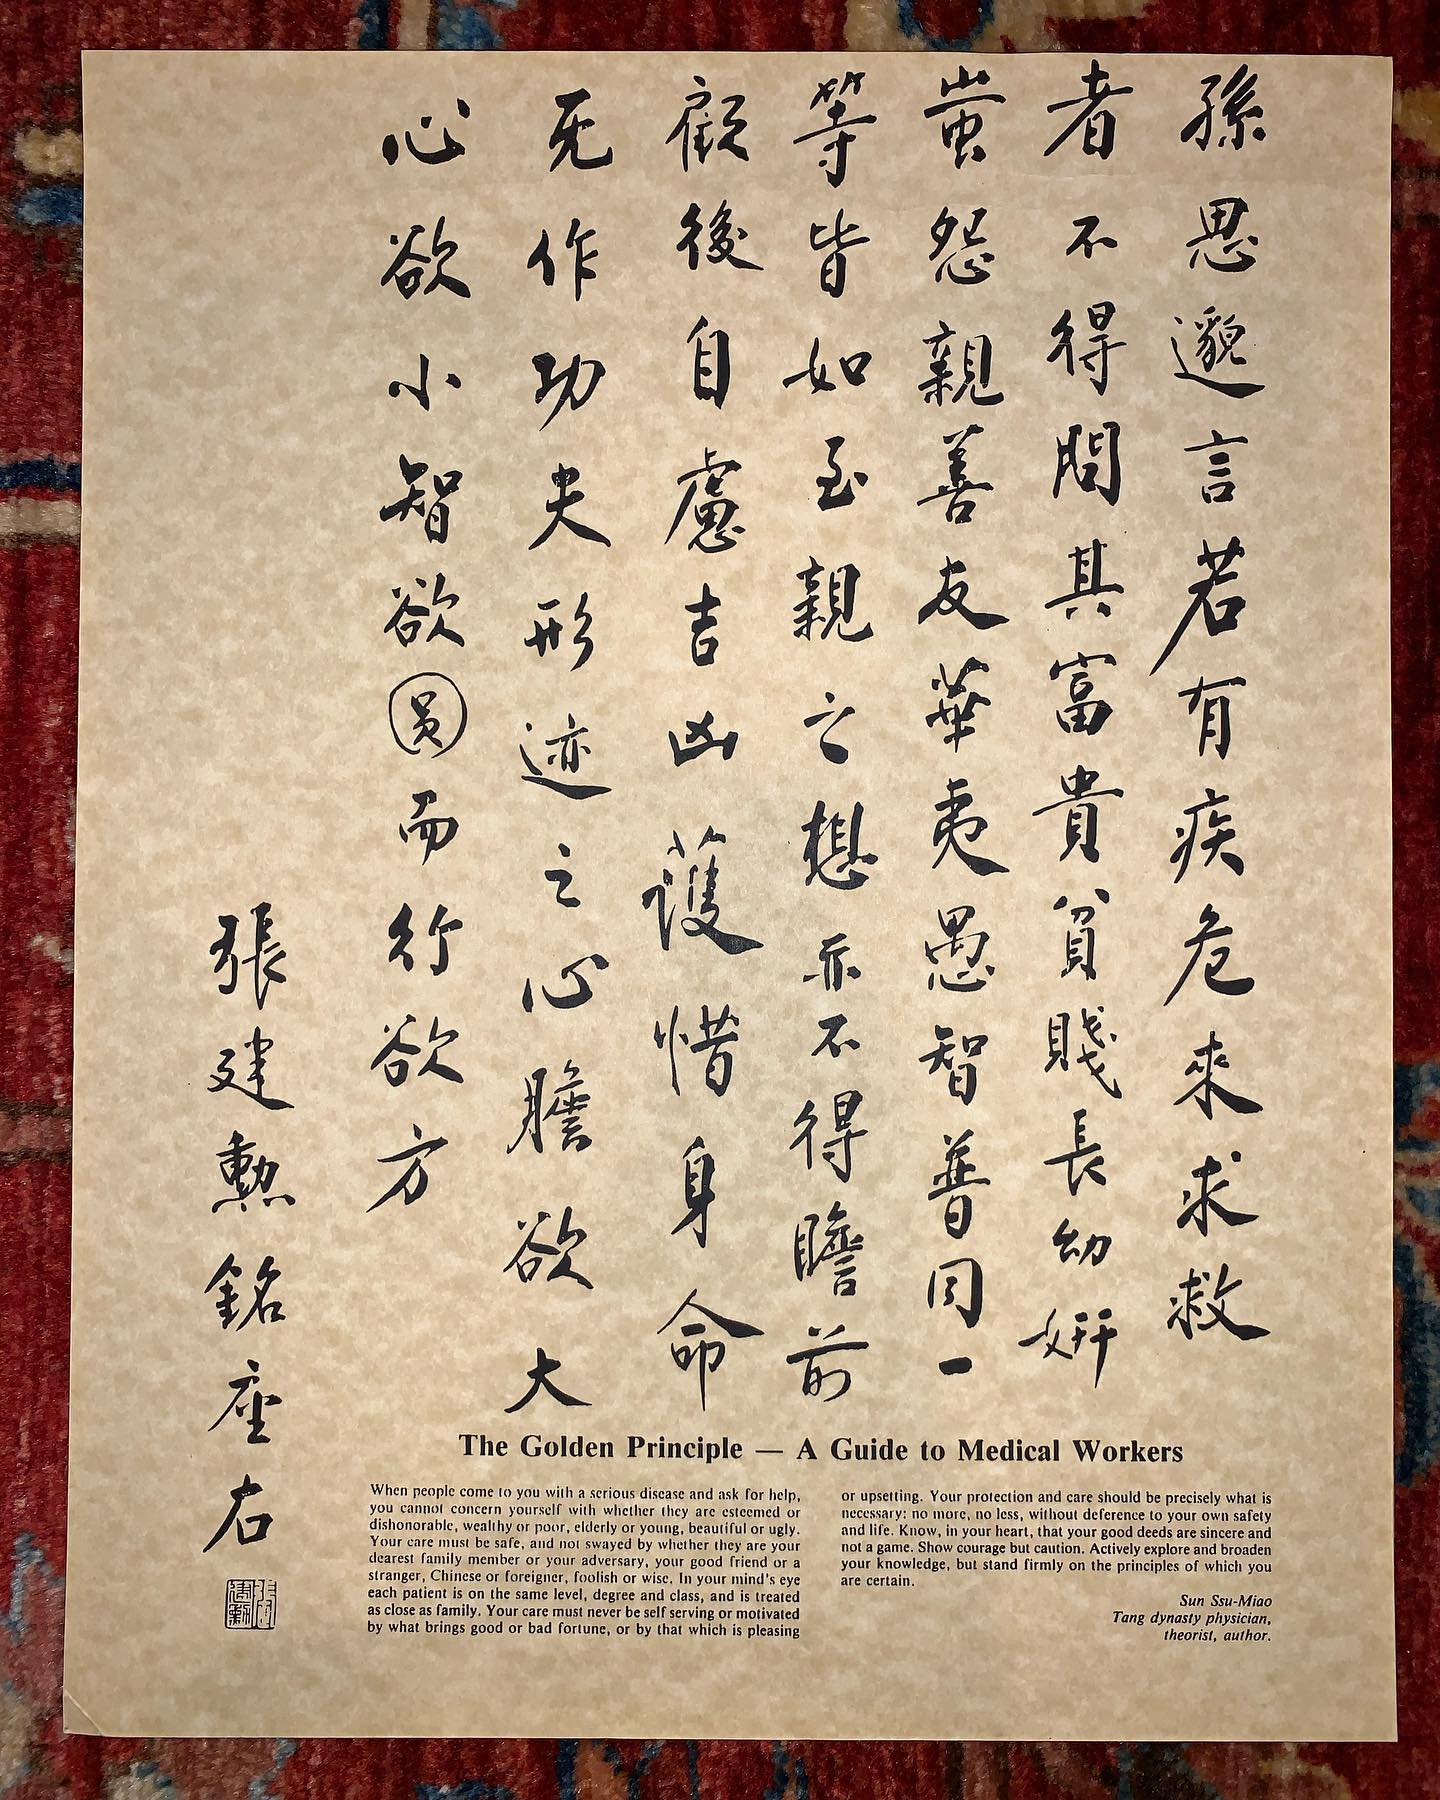 孫思邈言若有疾危來求救
者不得問其富貴貧賤長幼妍
蚩怨親善友華夷愚智普同一
等皆如至親之想亦不得瞻前
顧後自慮吉凶護惜身命
无作功夫形迹之心膽欲大
心欲小智欲圓而行欲方
張建勲銘座右
The Golden Principle — A Guide to Medical Workers
When people come to you with a serious disease and ask for help,
you cannot concern yourself with whether they are esteemed or
dishonorable, wealthy or poor, elderly or young, beautiful or ugly.
Your care must be safe, and not swayed by whether they are your
dearest family member or your adversary, your good friend or a
stranger, Chinese or foreigner, foolish or wise. In your mind's eye
each patient is on the same level, degree and class, and is treated
as close as family. Your care must never be self serving or motivated
by what brings good or bad fortune, or by that which is pleasing
or upsetting. Your protection and care should be precisely what is
necessary: no more, no less, without deference to your own safety
and life. Know, in your heart, that your good deeds are sincere and
not a game. Show courage but caution. Actively explore and broaden
your knowledge, but stand firmly on the principles of which you
are certain.
Sun Ssu-Miao
Tang dynasty physician,
theorist, author.